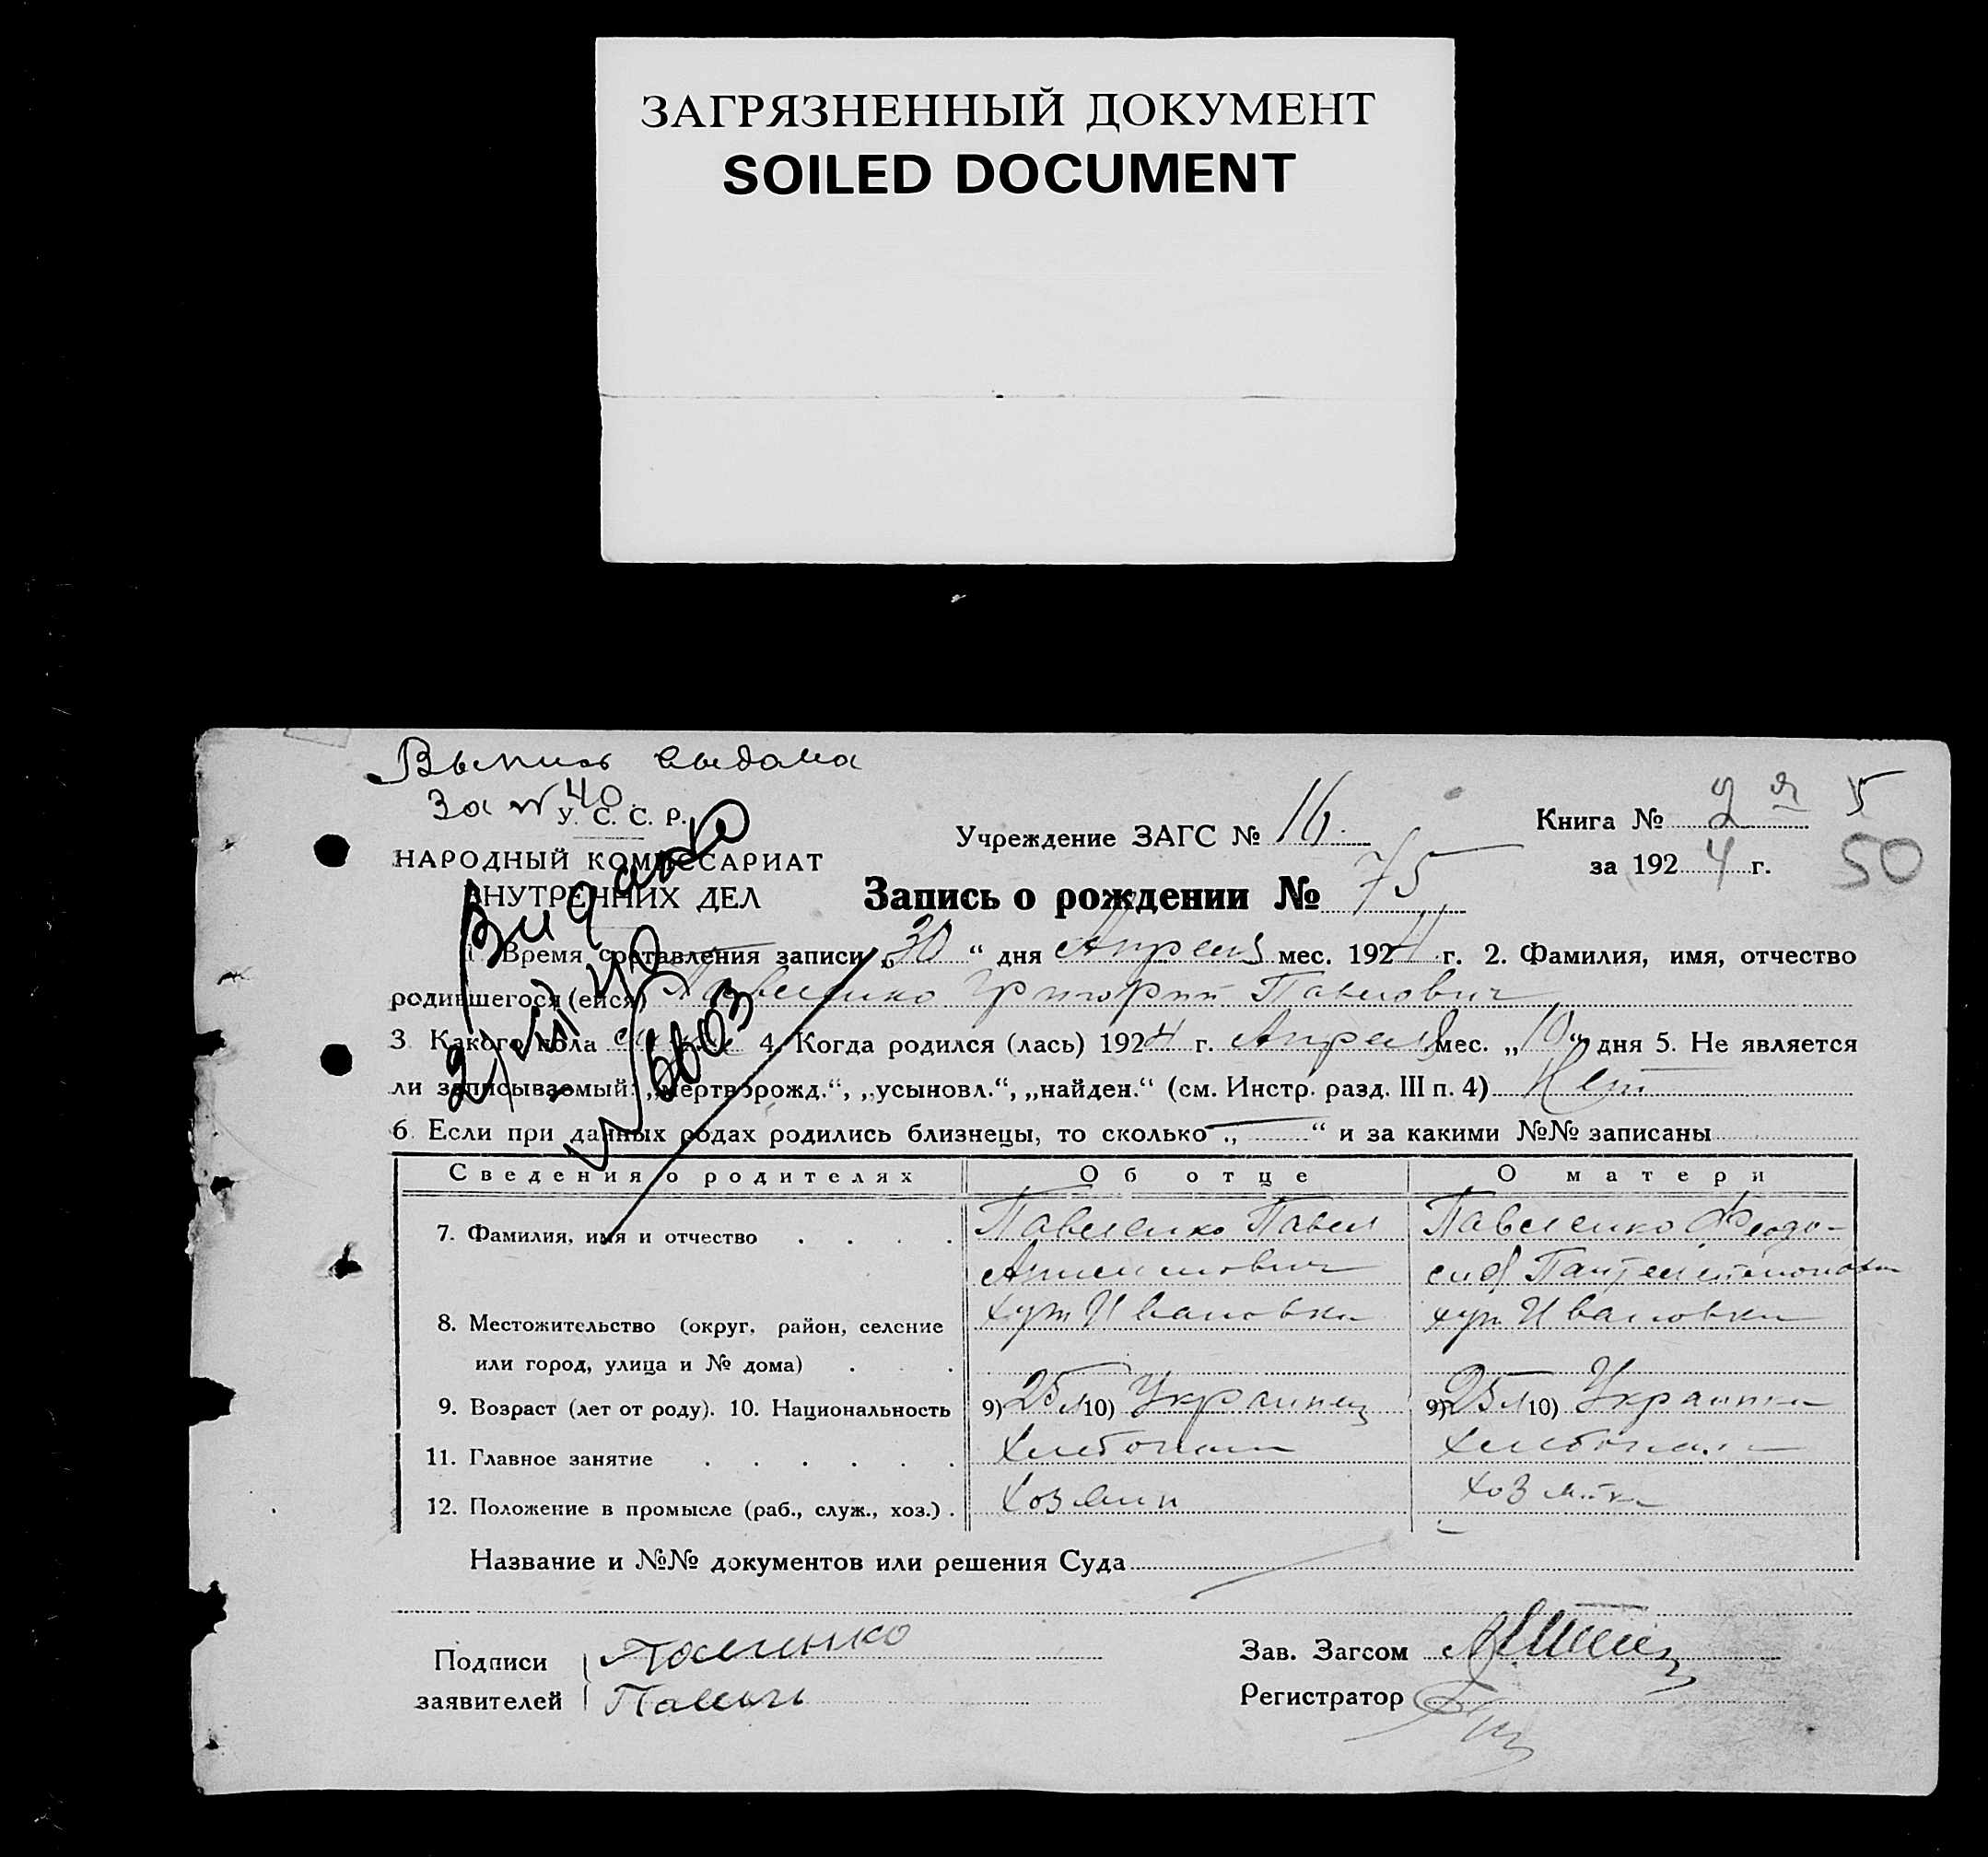 ЗАГРЯЗНЕННЫЙ ДОКУМЕНТ
SOILED DOCUMENT
Выпись выдана
За № 40
У. С. С. Р.
НАРОДНЫЙ КОМИССАРИАТ
ВНУТРЕННИХ ДЕЛ
Видано
Учреждение ЗАГС № 16.
Книга № 2 я 5
за 1924 г. 50
Запись о рождении № 75
1. Время составления записи „30“ дня Апреля мес. 1924 г. 2. Фамилия, имя, отчество
родившегося (ейся) Павленко Григорий Павлович
3 Какого пола 4. Когда родился (лась) 1924 г. Апреля мес. „10“ дня 5. Не является
ли записываемый: „мертворожд.“, „усыновл.“, „найден.“ (см. Инстр. разд. III п. 4) Нет
6 Если при данных родах родились близнецы, то сколько „ — “ и за какими №№ записаны
Сведения о родителях Об отце О матери
7. Фамилия, имя и отчество Павленко Павел Павленко Феодо-
8. Местожительство (округ, район, селение хут Ивановка хут Ивановка
или город, улица и № дома)
9. Возраст (лет от роду). 10. Национальность 9) 25 л 10) Украинец 9) 25 л 10) Украинка
11. Главное занятие
12. Положение в промысле (раб., служ., хоз.) Хозяин Хозяйка
Название и №№ документов или решения Суда
Подписи
заявителей
Зав. Загсом
Регистратор